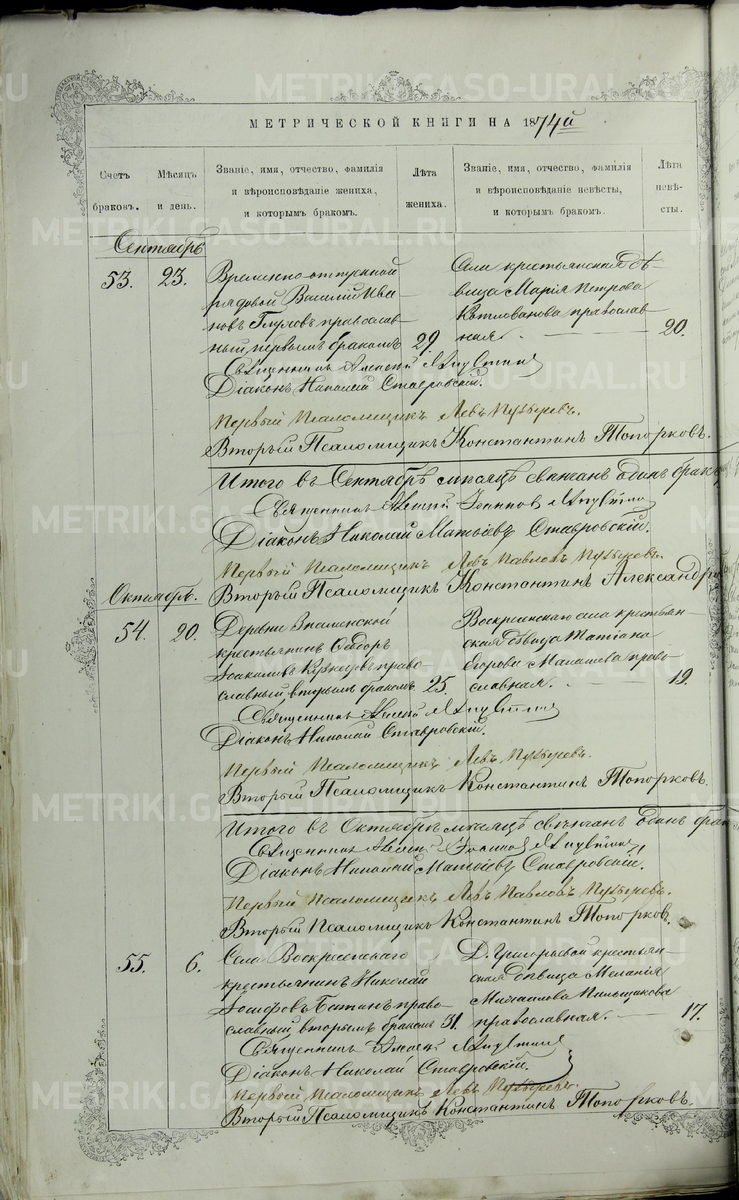 МЕТРИЧЕСКОЙ КНИГИ НА 1874й
Счетъ браковъ.
Мѣсяцъ и день.
Званіе, имя, отчество, фамилія и вѣроисповѣданіе жениха, и которымъ бракомъ.
Лѣта жениха.
Званіе, имя, отчество, фамилія и вѣроисповѣданіе невѣсты, и которымъ бракомъ.
Лѣта невѣсты.
Сентябрь
53. 23.
Временно-отпускной
рядовой Василій Ива-
новъ Глуховъ православ-
ный, первымъ бракомъ 29
крестьянская дѣ-
вица Марія Петрова
православ-
ная. 20.
Священникъ Алексій
Діаконъ Николай Ставровскій.
Первый Псаломщикъ Левъ Пузыревъ.
Вторый Псаломщикъ Константинъ Топорковъ.
Итого въ Сентябрѣ мѣсяцѣ свѣнчанъ одинъ бракъ
Священникъ Алексій Іоанновъ
Діаконъ Николай Матѳіевъ Ставровскій.
Первый Псаломщикъ Левъ Павловъ Пузыревъ.
Вторый Псаломщикъ Константинъ
Октябрь.
54. 20.
Деревни Знаменской
крестьянинъ Ѳедоръ
Іоакимовъ Кузнецовъ право-
славный, вторымъ бракомъ 25.
Воскресенскаго села крестьян-
ская дѣвица Татіана
Егорова право-
славная. 19.
Священникъ Алексій
Діаконъ Николай Ставровскій.
Первый Псаломщикъ Левъ Пузыревъ.
Вторый Псаломщикъ Константинъ Топорковъ.
Итого въ Октябрѣ мѣсяцѣ свѣнчанъ одинъ
Священникъ Алексій Іоанновъ
Діаконъ Николай Матѳіевъ Ставровскій.
Первый Псаломщикъ Левъ Павловъ Пузыревъ.
Вторый Псаломщикъ Константинъ Топорковъ.
55. 6.
Села Воскресенскаго
крестьянинъ Николай
Іосифовъ право-
славный, вторымъ бракомъ 31.
Д. Григорьевой крестьян-
ская дѣвица Меланія
Михаилова Пильщикова
православная. 17.
Священникъ Алексій
Діаконъ Николай Ставровскій.
Первый Псаломщикъ Левъ Пузыревъ.
Вторый Псаломщикъ Константинъ Топорковъ.
METRIKI.GASO-URAL.RU